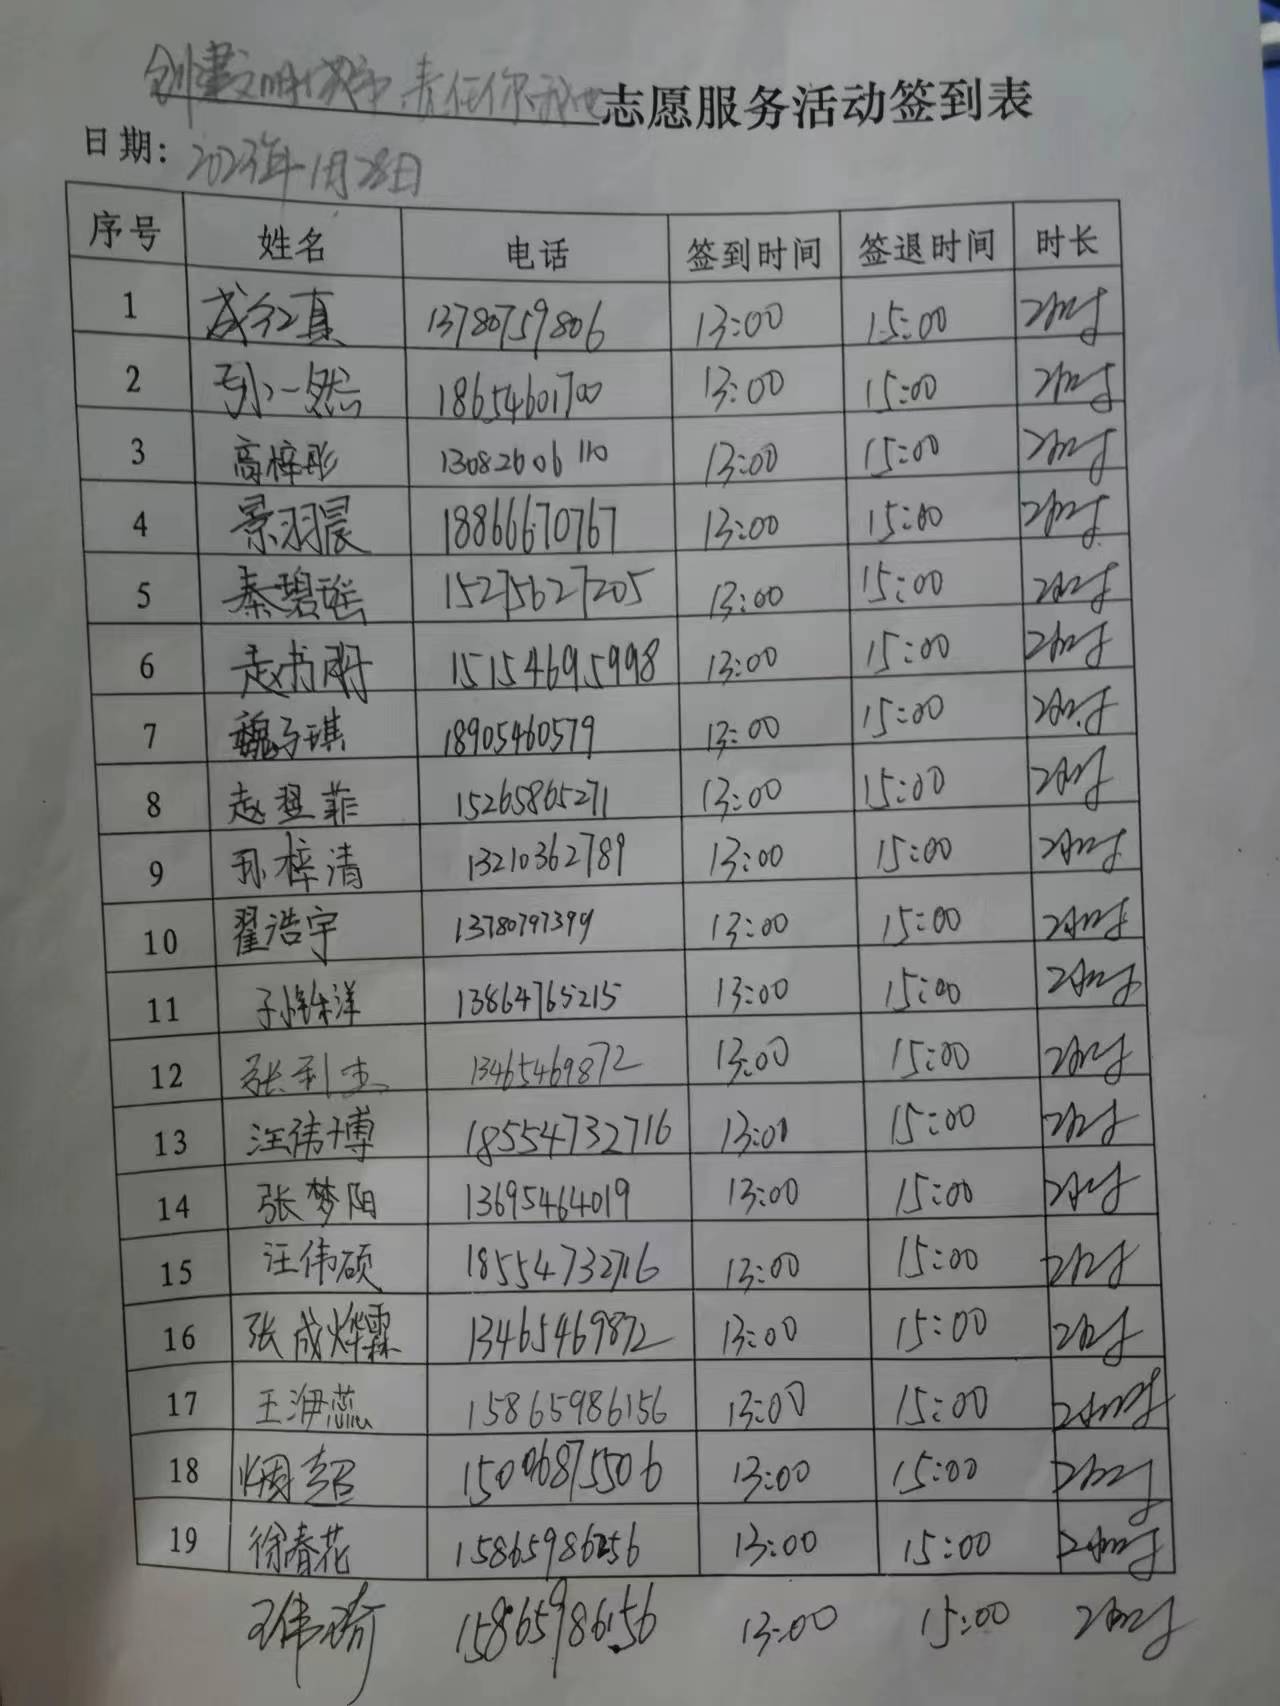 创建文明城市 责任你我他 志愿服务活动签到表
日期: 2023年1月28日
序号 姓名 电话 签到时间 签退时间 时长
1 成红真 13780759806 13:00 15:00 2小时
2 孙一然 18654601700 13:00 15:00 2小时
3 高梓彤 13082606110 13:00 15:00 2小时
4 景羽晨 18866670767 13:00 15:00 2小时
5 秦碧瑶 15275627205 13:00 15:00 2小时
6 赵书 15154695998 13:00 15:00 2小时
7 魏子琪 18905460579 13:00 15:00 2小时
8 赵翌菲 15265865271 13:00 15:00 2小时
9 孙梓清 13210362789 13:00 15:00 2小时
10 翟浩宇 13780797399 13:00 15:00 2小时
11 13864765215 13:00 15:00 2小时
12 张利杰 13465469872 13:00 15:00 2小时
13 汪伟博 18554732716 13:00 15:00 2小时
14 张梦阳 13695464019 13:00 15:00 2小时
15 汪伟硕 18554732716 13:00 15:00 2小时
16 张成烨霖 13465469872 13:00 15:00 2小时
17 王洢蕊 15865986156 13:00 15:00 2小时
18 超 15006875506 13:00 15:00 2小时
19 徐春花 15865986156 13:00 15:00 2小时
王伟瑜 15865986156 13:00 15:00 2小时